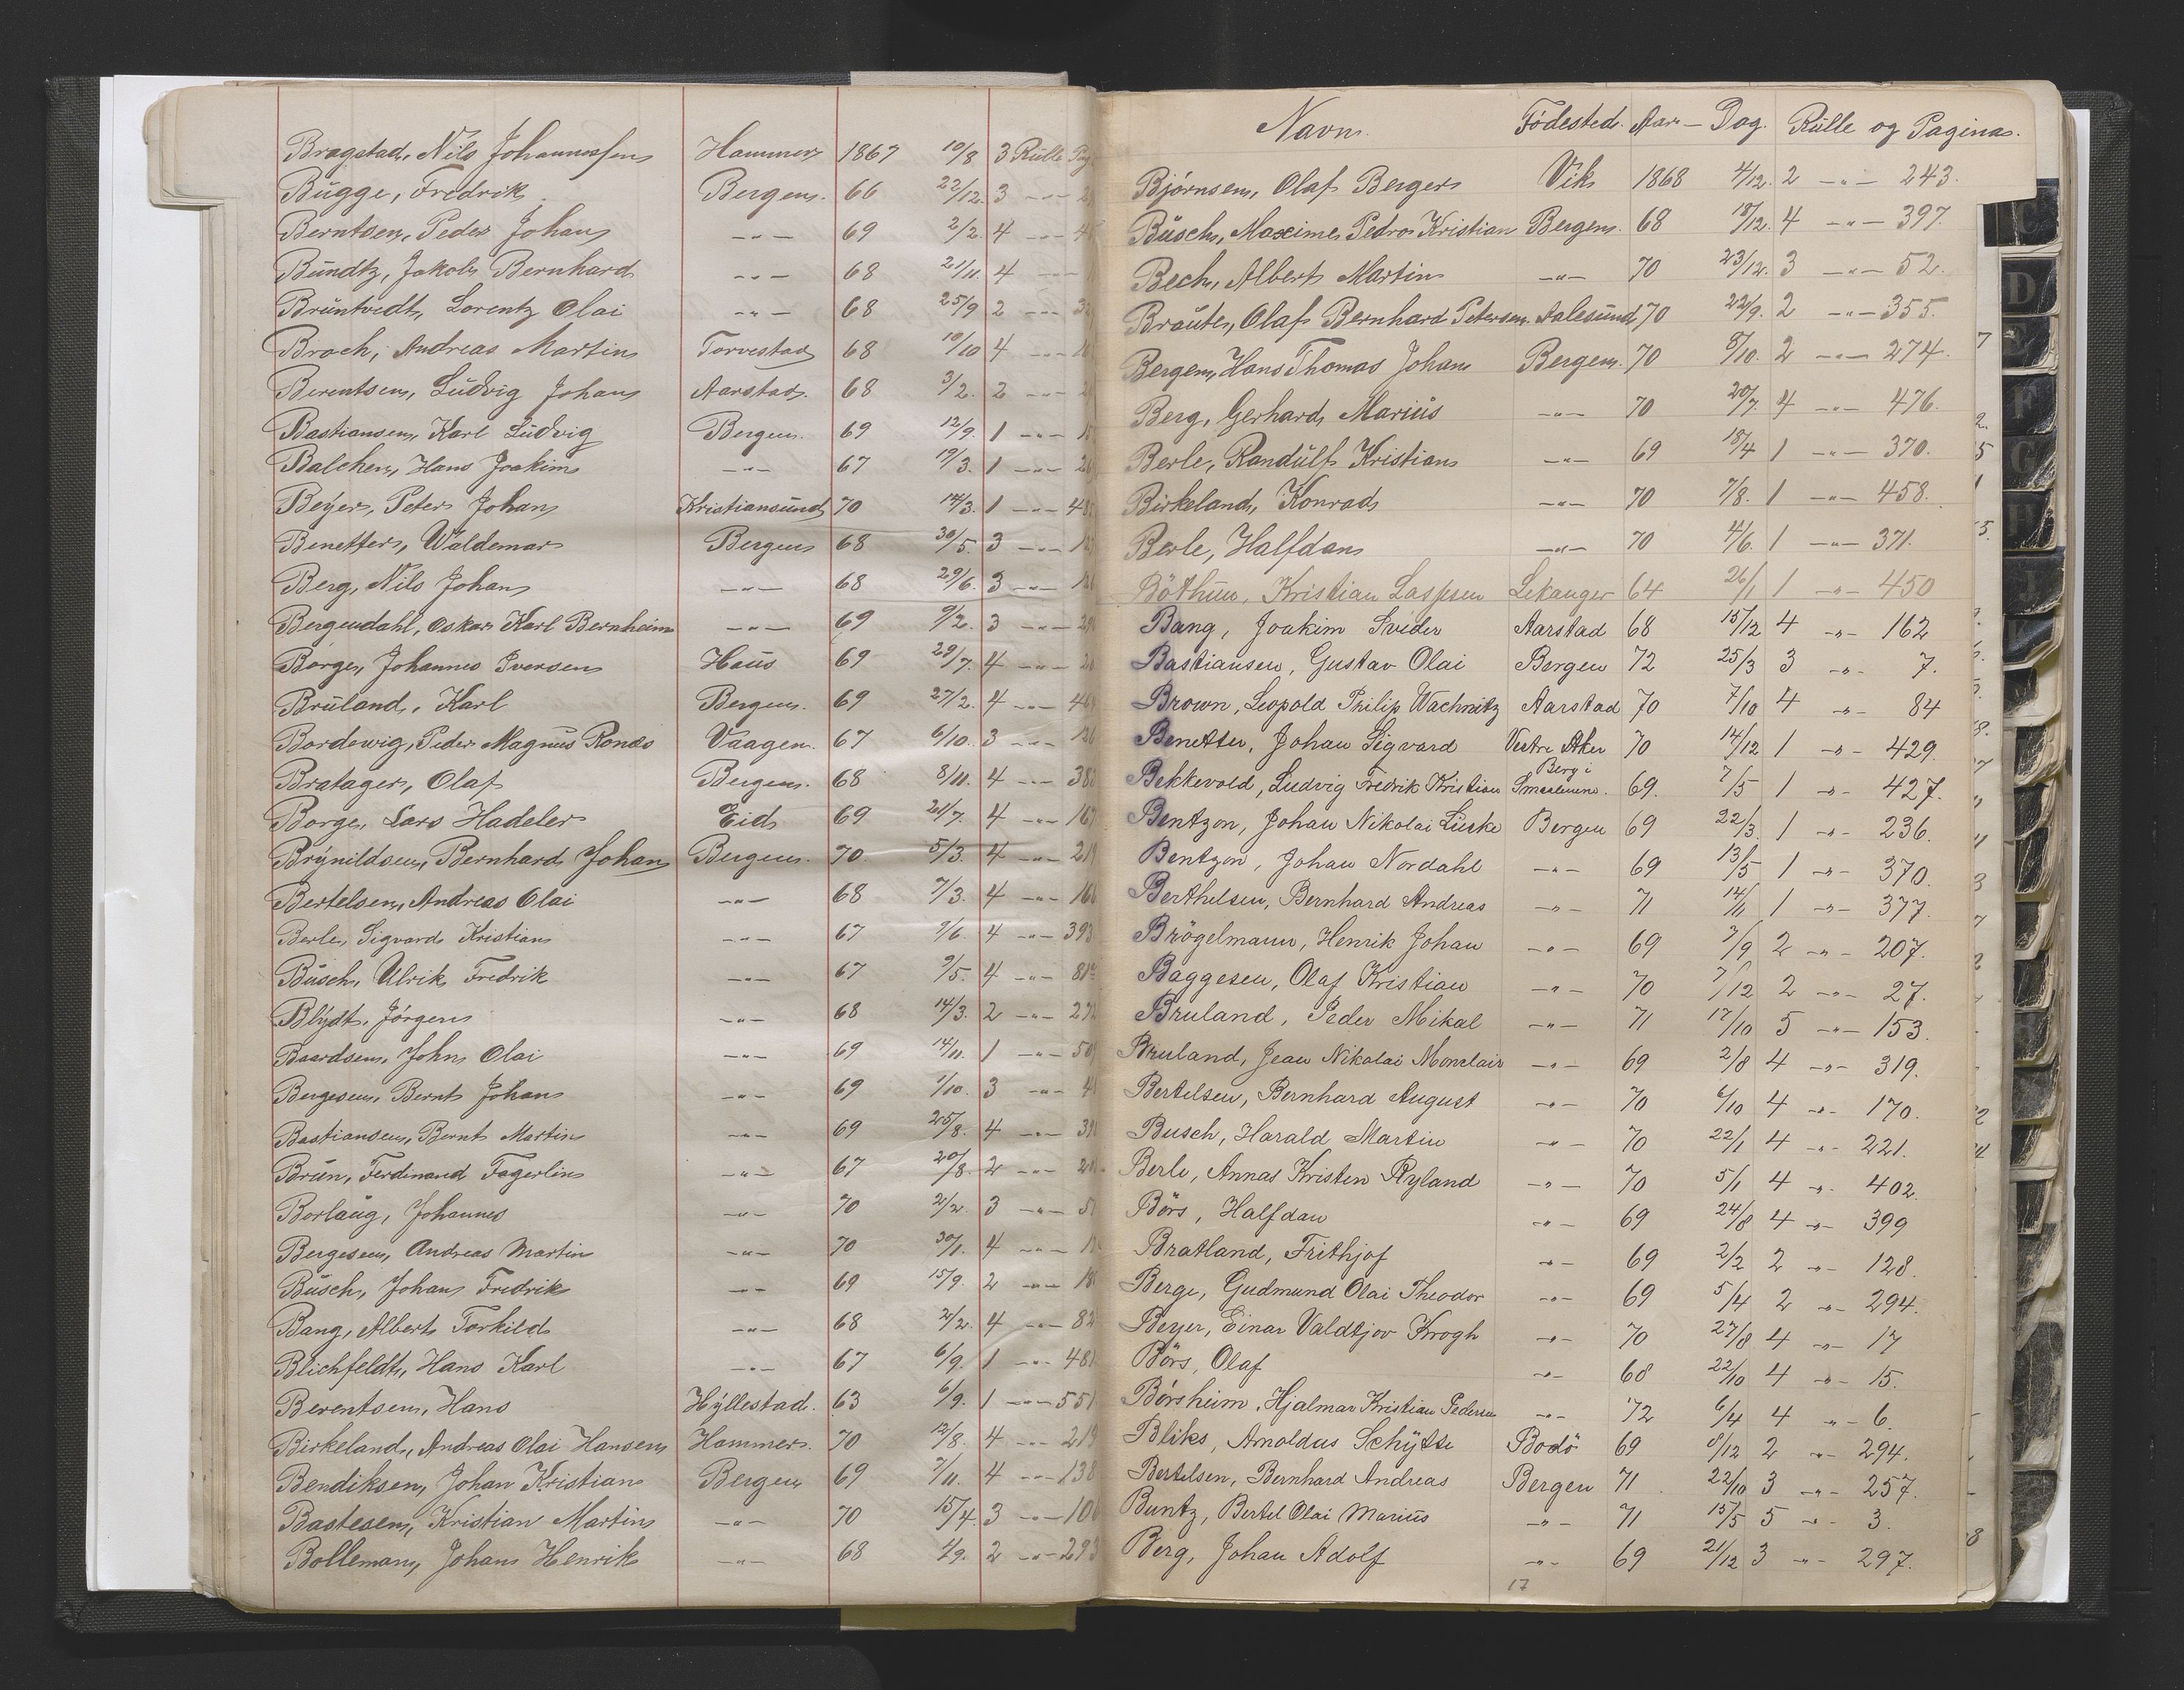 Bragstad, Nils Johannessen Hammer 1867 10/8 3 Rulle Pag
Bugge, Fredrik Bergen. 66 22/12. 3 -"-
Berntsen, Peder Johan -"- 69 2/2. 4 -"-
Bundtz, Jakob Bernhard -"- 68 21/11. 4 -"-
Bruntvedt, Lorentz Olai -"- 68 25/9 2 -"-
Broch, Andreas Martin Torvestad 68 10/10 4 -"-
Berentsen, Ludvig Johan Aarstad. 68 3/2. 2 -"-
Bastiansen, Karl Ludvig Bergen. 69 12/9. 1 -"-
Balchen, Hans Joakim -"- 67 19/3. 1 -"-
Beyer, Peter Johan Kristiansund 70 14/3. 1 -"-
Benetter, Waldemar Bergen 68 30/5. 3 -"-
Berg, Nils Johan -"- 68 29/6. 3 -"-
Bergendahl, Oskar Karl Bernheim -"- 69 9/2. 3 -"-
Borge, Johannes Iversen Haus 69 29/7. 4 -"-
Bruland, Karl Bergen. 69 27/2. 4 -"-
Bordewig, Peder Magnus Rondo Vaagen. 67 6/10. 3 -"-
Bratager, Olaf Bergen. 68 8/11. 4 -"- 38
Borge, Lars Hadeler Eid 69 21/7. 4 -"- 167
Brynildsen, Bernhard Johan Bergen. 70 5/3. 4 -"- 219
Bertelsen, Andreas Olai -"- 68 7/3. 4 -"- 16
Berle, Sigvard Kristian -"- 67 9/6. 4 -"- 393
Busch, Ulrik Fredrik -"- 67 9/5. 4 -"- 81
Blydt, Jörgen -"- 68 14/3. 2 -"- 27
Baardsen, John Olai -"- 69 14/11. 1 -"- 50
Bergesen, Bernt Johan -"- 69 1/10. 3 -"- 4
Bastiansen, Bernt Martin -"- 69 25/8. 4 -"- 3
Brun, Ferdinand Fagerlin -"- 67 20/8. 2 -"-
Borlaug, Johannes -"- 70 2/2. 3 -"- 5
Bergesen, Andreas Martin -"- 70 30/1. 4 -"- 1
Busch, Johan Fredrik -"- 69 15/9. 2 -"- 18
Bang, Albert Torkild -"- 68 2/2. 4 -"- 82
Blichfeldt, Hans Karl -"- 67 6/9. 1 -"- 481
Berentsen, Hans Hyllestad. 63 6/9. 1 -"- 551
Birkeland, Andreas Olai Hansen Hammer. 70 12/8. 4 -"- 219
Bendiksen, Johan Kristian Bergen 69 7/11. 4 -"- 138
Bastesen, Kristian Martin -"- 70 15/4. 3 -"- 10
Bolleman, Johan Henrik -"- 68 4/9. 2 -"- 293
Navn. Födested. Aar - Dag. Rulle og Pagina.
Björnsen, Olaf Berger Vik 1868 4/12. 2 -"- 243.
Busch, Maxime Pedro Kristian Bergen. 68 18/12. 4 -"- 397.
Bech, Albert Martin -"- 70 23/12. 3 -"- 52.
Braute, Olaf Bernhard Petersen. Aalesund 70 22/9. 2 -"- 355.
Bergen, Hans Thomas Johan Bergen. 70 8/10. 2 -"- 274.
Berg, Gerhard Marius -"- 70 20/7. 4 -"- 476.
Berle, Randulf Kristian -"- 69 18/4 1 -"- 370.
Birkeland, Konrad -"- 70 7/8. 1 -"- 458.
Berle, Halfdan -"- 70 4/6. 1 -"- 371.
Böthun, Kristian Lassen Lekanger 64 26/1 1 -"- 450
Bang, Joakim Svider Aarstad 68 15/12 4 -"- 162
Bastiansen, Gustav Olai Bergen 72 25/3 3 -"- 7.
Brown, Leopold Philip Wachnitz Aarstad 70 7/10 4 -"- 84
Benetter, Johan Sigvard Vestre Aker 70 14/12 1 -"- 429.
Bekkevold, Ludvig Fredrik Kristian Berg i Smaalenene. 69. 7/5 1 -"- 427.
Bentzon, Johan Nikolai Lüske Bergen 69 22/3. 1 -"- 236.
Bentzon, Johan Nordahl -"- 69 13/5 1 -"- 370.
Berthelsen, Bernhard Andreas -"- 71 14/11 1 -"- 377.
Brögelmann, Henrik Johan -"- 69 7/9 2 -"- 207.
Baggesen, Olaf Kristian -"- 70 7/12 2 -"- 27.
Bruland, Peder Mikal -"- 71 17/10 5 -"- 153.
Bruland, Jean Nikolai Monclair -"- 69 2/8 4 -"- 319.
Bertelsen, Bernhard August -"- 70 6/10 4 -"- 170.
Busch, Harald Martin -"- 70 22/1 4 -"- 221.
Berle, Annas Kristen Ryland -"- 70 5/1 4 -"- 402.
Börs, Halfdan -"- 69 24/8 4 -"- 399
Bratland, Frithjof -"- 69 2/2 2 -"- 128.
Berge, Gudmund Olai Theodor -"- 69 5/4 2 -"- 294.
Beyer, Einar Valdtjov Krogh -"- 70 27/8 4 -"- 17
Börs, Olaf -"- 68 22/10 4 -"- 15.
Börsheim, Hjalmar Kristian Pedersen -"- 72 6/4 4 -"- 6.
Bliks, Arnoldus Schytte Bodö 69 8/12 2 -"- 294.
Bertelsen, Bernhard Andreas Bergen 71 22/10 3 -"- 257.
Buntz, Bertel Olai Marius -"- 71 15/5 5 -"- 3.
Berg, Johan Adolf -"- 69 21/12 3 -"- 297.
17
C
D
F
G
H
I